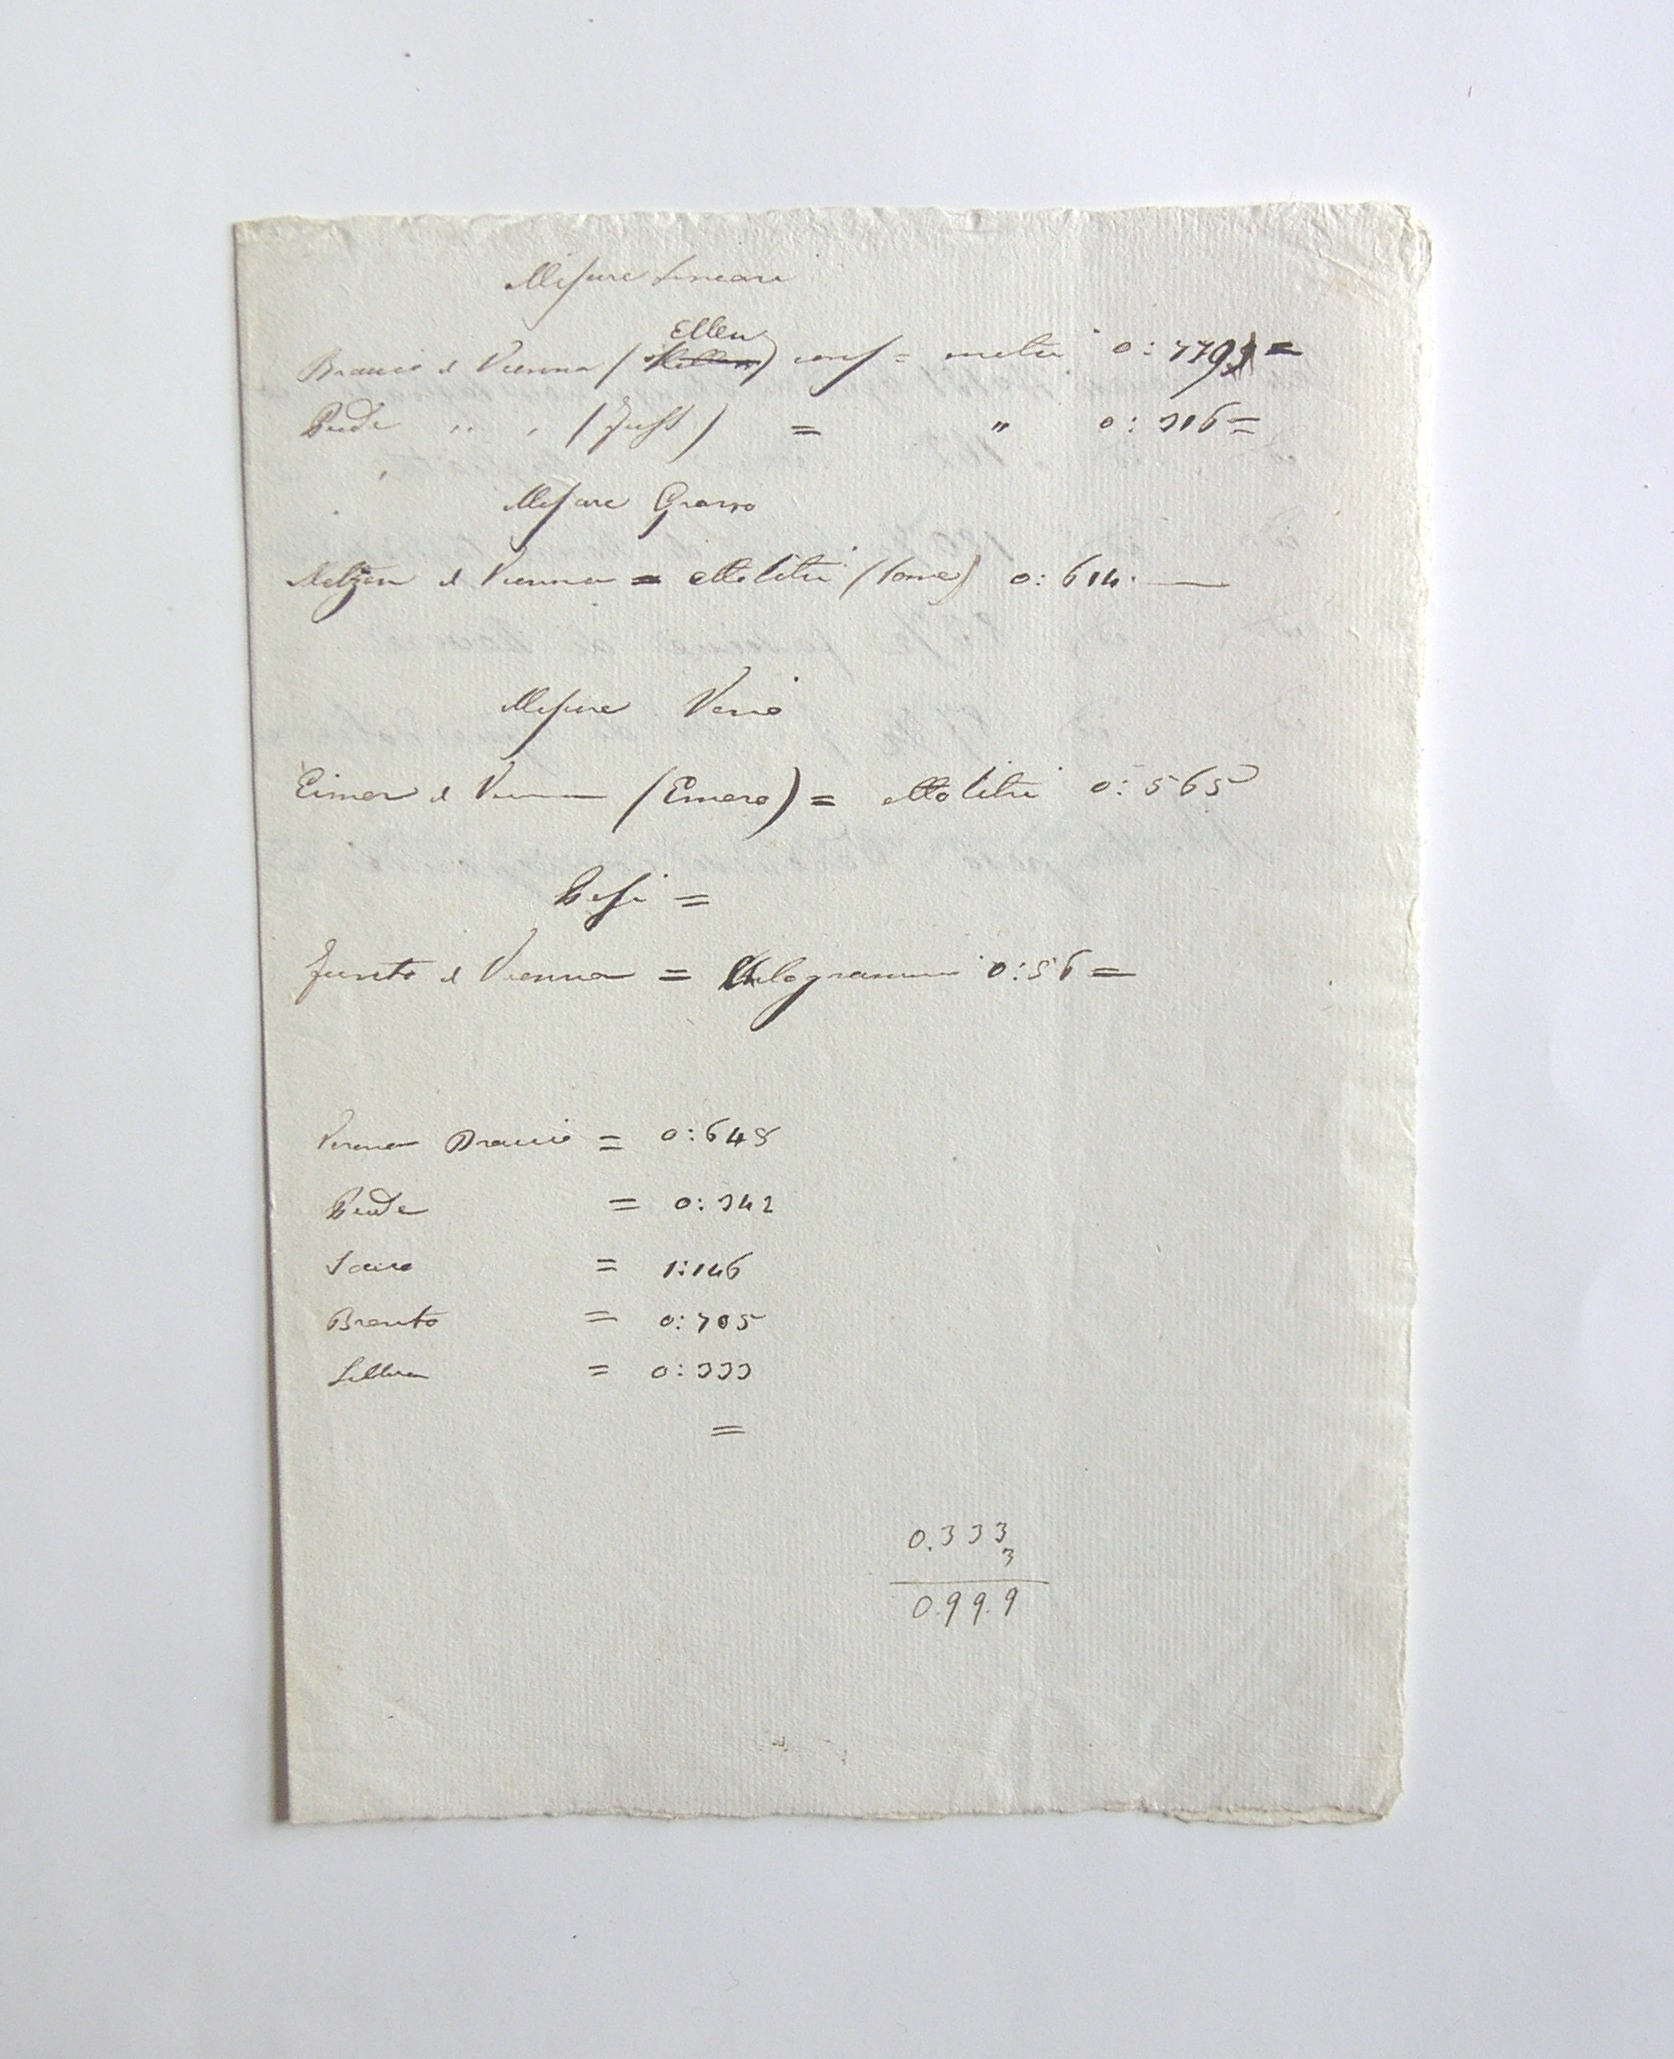 Misure Lineari
Ellen
Braccio di Vienna ( ) corrisp = metri 0:779 =
Piede " " (Fuss) = " 0:316 =
Misure Grano
Metzen di Vienna = ettolitri (some) 0:614.
Misure Vino
Eimer di Vienna (Emero) = ettolitri 0:565
Pesi =
Funto di Vienna = Kilogrammi 0:56 =
Verona Braccio = 0:648
Piede = 0:342
Sacco = 1:146
Brento = 0:705
Libbra = 0:333
=
0.333
3
0.999